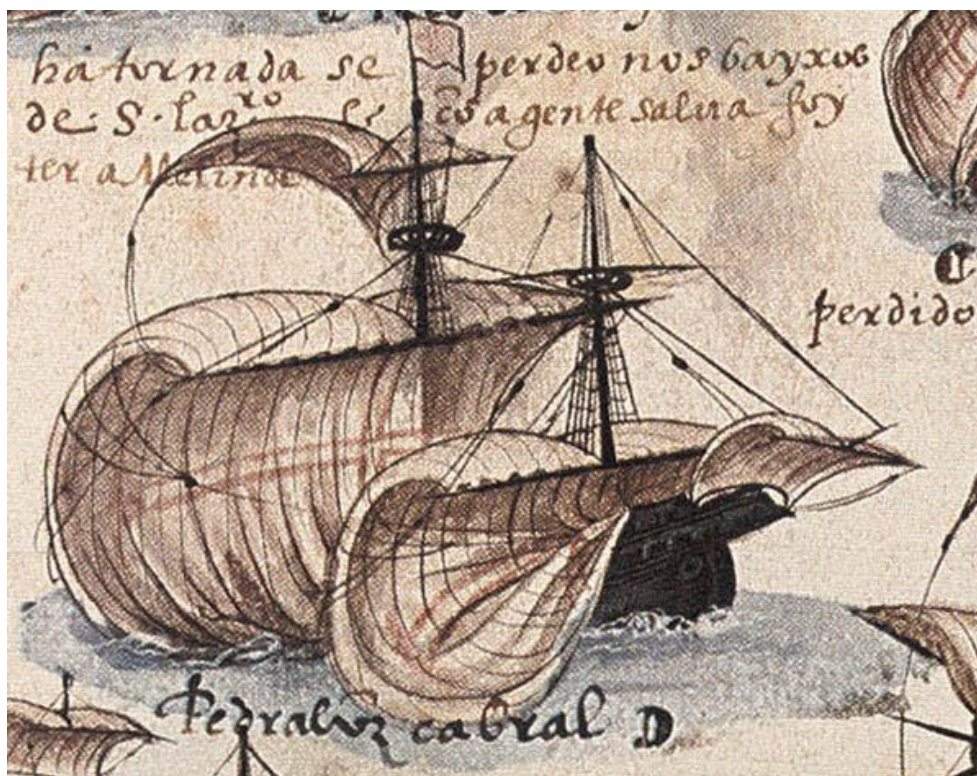 ha tornada se perdeo nos bayxos
de S. laz.ro co a gente salua foy
ter a Melinde
perdido
Pedralvz cabral D